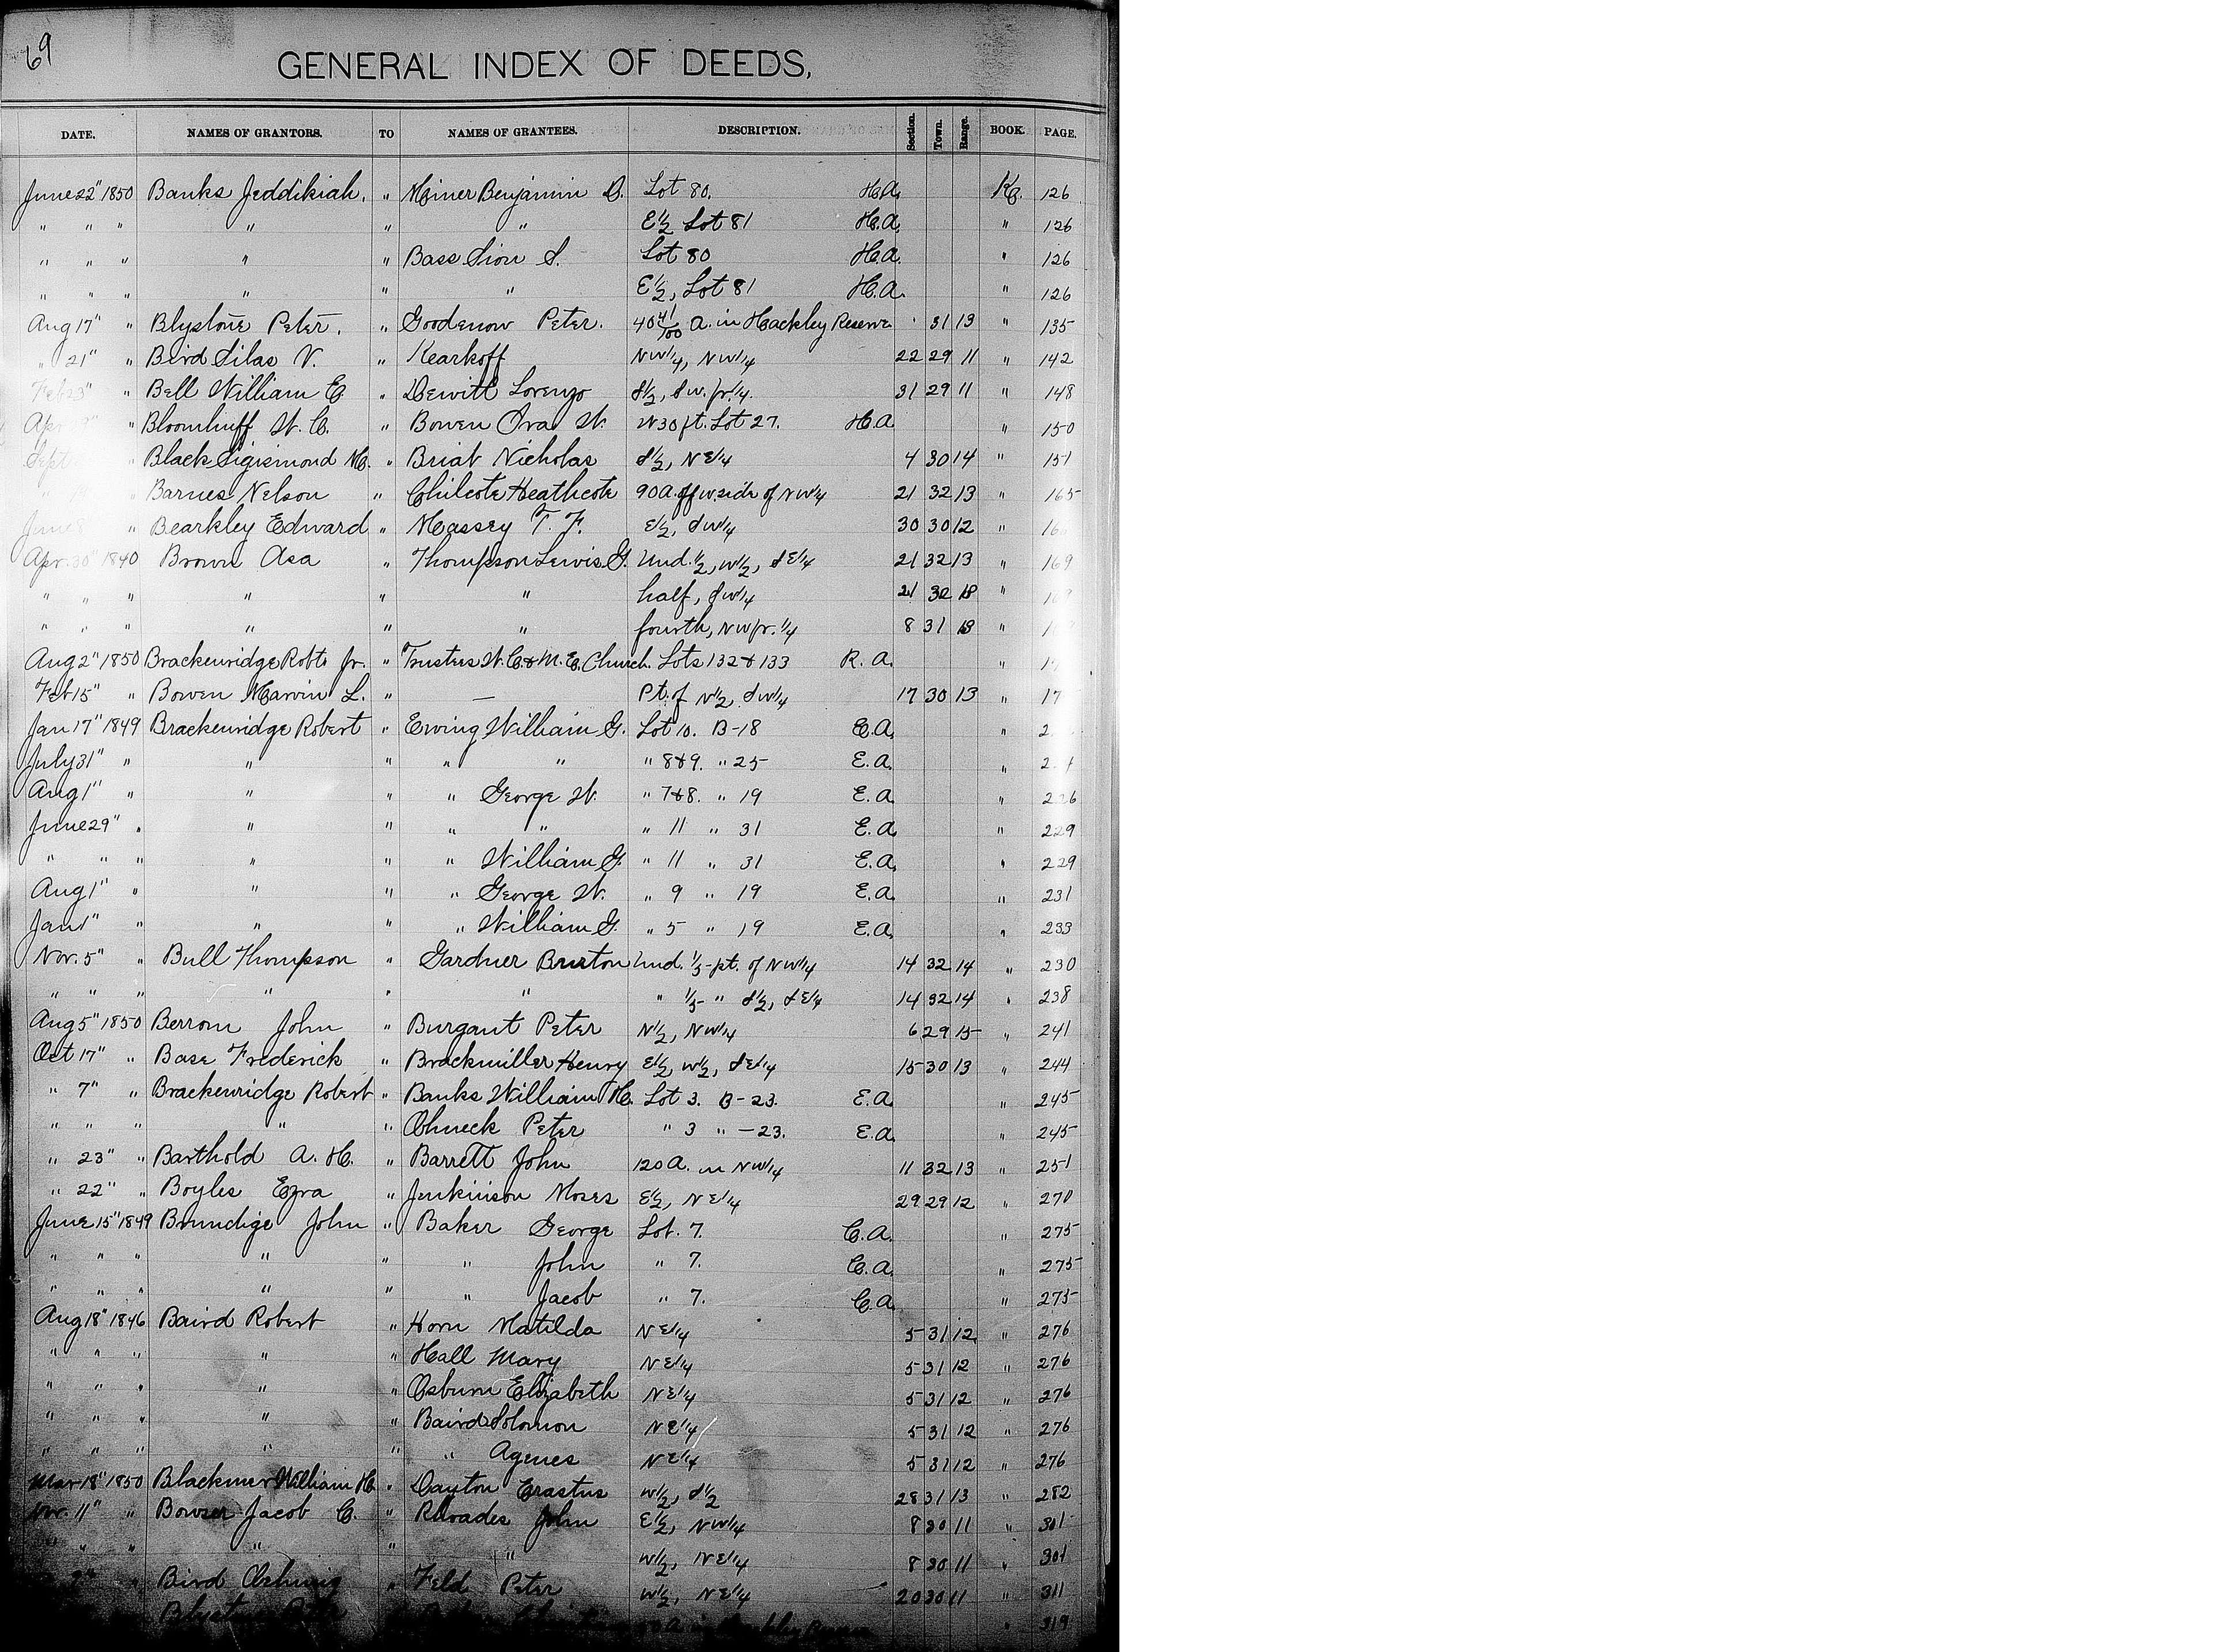 69
GENERAL INDEX OF DEEDS,
DATE. NAMES OF GRANTORS. TO NAMES OF GRANTEES. DESCRIPTION. Section. Town. Range. BOOK. PAGE.
June 22" 1850 Banks Jeddikiah. " Miner Benjamin D. Lot 80. H.A. K. 126
" " " " " " E1/2 Lot 81 H.A. " 126
" " " " " Bass Sion S. Lot 80 H.A. " 126
" " " " " " E1/2, Lot 81 H.A. " 126
Aug 17" " Blystone Peter. " Goodenow Peter. 40 41/100 A. in Hackley Reserve 31 13 " 135
" 21" " Bird Silas V. " Kearkoff NW1/4, NW1/4 22 29 11 " 142
Feb 23" " Bell William E. " Dewitt Lorenzo S1/2, SW. fr. 1/4. 31 29 11 " 148
Apr " Bloomhuff W. C. " Bowen Ora W. W 30 ft. Lot 27. H.A. " 150
Sept " Black Sigismond M. " Briat Nicholas S1/2, NE1/4 4 30 14 " 151
" " Barnes Nelson " Chilcote Heathcote 90 A. off W. side of NW1/4 21 32 13 " 165
June 8" " Bearkley Edward " Massey T. F. E1/2, SW1/4 30 30 12 "
Apr. 30" 1840 Brown Asa " Thompson Lewis G. Und. 1/2, W1/2, SE1/4 21 32 13 " 169
" " " " " " half, SW1/4 21 32 13 " 169
" " " " " " fourth, NW fr. 1/4 8 31 13 "
Aug 2" 1850 Brackenridge Robt. Jr. " Trustees W. C. & M. E. Church. Lots 132 & 133 R. A. "
Feb 15" " Bowen Marvin L. " — Pt. of N1/2, SW1/4 17 30 13 " 17
Jan 17" 1849 Brackenridge Robert " Ewing William G. Lot 10. B-18 E.A. "
July 31" " " " " " " 8&9. " 25 E.A. "
Aug 1" " " " " George W. " 7&8. " 19 E.A. " 226
June 29" " " " " " " 11 " 31 E.A. " 229
" " " " " " William G. " 11 " 31 E.A. " 229
Aug 1" " " " " George W. " 9 " 19 E.A. " 231
Jan 1" " " " " William G. " 5 " 19 E.A. " 233
Nov. 5" " Bull Thompson " Gardner Burton Und. 1/3 - pt. of NW1/4 14 32 14 " 230
" " " " " " " 1/3 - " S1/2, SE1/4 14 32 14 " 238
Aug 5" 1850 Berrom John " Burgant Peter N1/2, NW1/4 6 29 15 " 241
Oct 17" " Base Frederick " Brockmiller Henry E1/2, W1/2, SE1/4 15 30 13 " 244
" 7" " Brackenridge Robert " Banks William H. Lot 3. B-23. E.A. " 245
" " " " " Ohneck Peter " 3 " -23. E.A. " 245
" 23" " Barthold A. H. " Barrett John 120 A. in NW1/4 11 32 13 " 251
" 22" " Boyles Ezra " Jenkinson Moses E1/2, NE1/4 29 29 12 " 270
June 15" 1849 Brundige John " Baker George Lot. 7. C.A. " 275
" " " " " " John " 7. C.A. " 275
" " " " " " Jacob " 7. C.A. " 275
Aug 18" 1846 Baird Robert " Horn Matilda NE1/4 5 31 12 " 276
" " " " " Hall Mary NE1/4 5 31 12 " 276
" " " " " Osburn Elizabeth NE1/4 5 31 12 " 276
" " " " " Baird Solomon NE1/4 5 31 12 " 276
" " " " " " Agenes NE1/4 5 31 12 " 276
Mar 18" 1850 Blackmer William H. " Dayton Erastus W1/2, S1/2 28 31 13 " 282
Nov. 11" " Bowser Jacob C. " Rhoades John E1/2, NW1/4 8 30 11 " 301
" " " " " W1/2, NE1/4 8 30 11 " 301
" Bird " Feld Peter W1/2, NE1/4 20 30 11 " 311
" 319